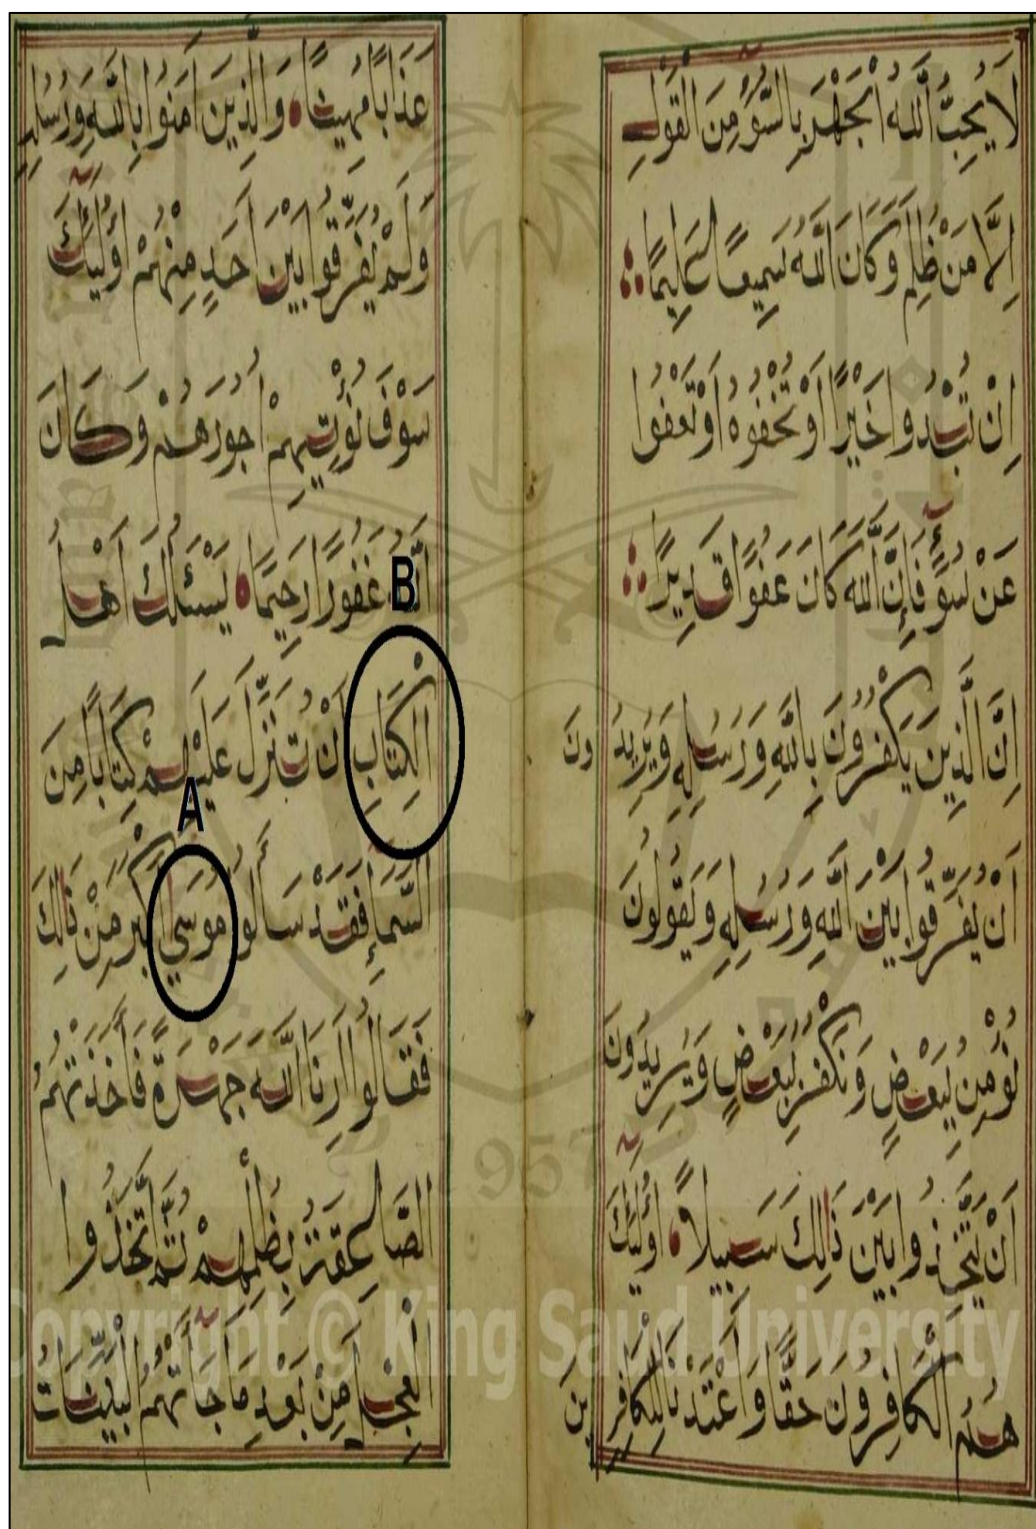 لَا يُحِبُّ اللَّهُ الْجَهْرَ بِالسُّوءِ مِنَ الْقَوْلِ
اِلَّا مَنْ ظُلِمَ وَكَانَ اللَّهُ سَمِيعًا عَلِيمًا
اِنْ تُبْدُوا خَيْرًا اَوْ تُخْفُوهُ اَوْ تَعْفُوا
عَنْ سُوءٍ فَاِنَّ اللَّهَ كَانَ عَفُوًّا قَدِيرًا
اِنَّ الَّذِينَ يَكْفُرُونَ بِاللَّهِ وَرُسُلِهِ وَيُرِيدُونَ
اَنْ يُفَرِّقُوا بَيْنَ اللَّهِ وَرُسُلِهِ وَيَقُولُونَ
نُؤْمِنُ بِبَعْضٍ وَنَكْفُرُ بِبَعْضٍ وَيُرِيدُونَ
اَنْ يَتَّخِذُوا بَيْنَ ذَالِكَ سَبِيلًا اُولَئِكَ
هُمُ الْكَافِرُونَ حَقًّا وَاَعْتَدْنَا لِلْكَافِرِينَ
عَذَابًا مُهِينًا وَالَّذِينَ اَمَنُوا بِاللَّهِ وَرُسُلِهِ
وَلَمْ يُفَرِّقُوا بَيْنَ اَحَدٍ مِنْهُمْ اُولَئِكَ
سَوْفَ نُؤْتِيهِمْ اُجُورَهُمْ وَكَانَ
اللَّهُ غَفُورًا رَحِيمًا يَسْئَلُكَ اَهْلُ
B
الْكِتَابِ اَنْ تُنَزِّلَ عَلَيْهِمْ كِتَابًا مِنَ
A
السَّمَاءِ فَقَدْ سَأَلُوا مُوسَي اَكْبَرَ مِنْ ذَالِكَ
فَقَالُوا اَرِنَا اللَّهَ جَهْرَةً فَاَخَذَتْهُمُ
الصَّاعِقَةُ بِظُلْمِهِمْ ثُمَّ اتَّخَذُوا
الْعِجْلَ مِنْ بَعْدِ مَا جَاَتْهُمُ الْبَيِّنَاتُ
1957
Copyright © King Saud University